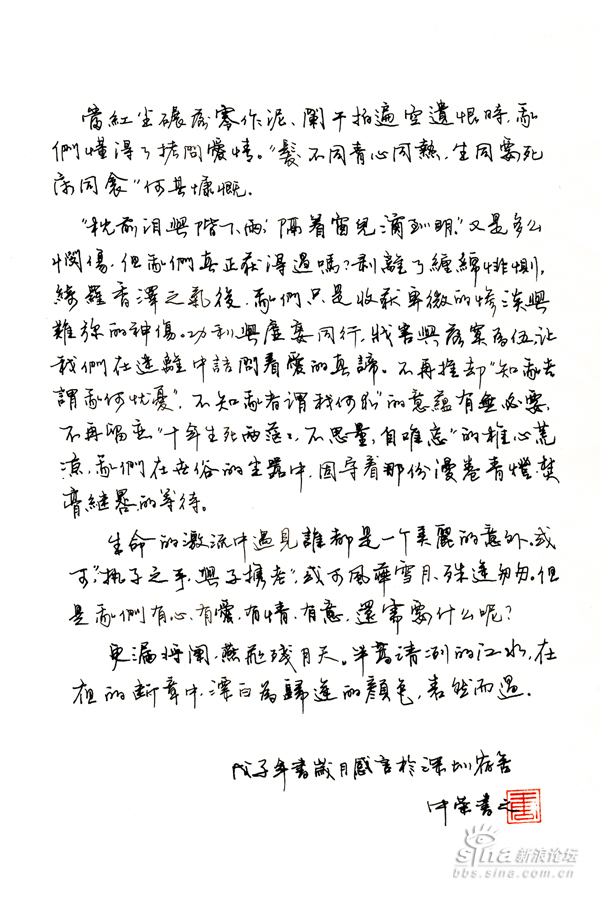 當紅尘碾落零作泥、闌干拍遍空遺恨時,我
們懂得了拷問愛情。"髮不同青心同熱,生同要死
同 "何其慷慨。
"枕前泪與階下雨,隔着窗兒滴到明,"又是多么
憫傷,但我們真正获得過嗎?剥離了纏綿悱惻,
綺羅香澤之氣後,我們只是收获卑微的惨淡與
難弥的神傷。功利與虚妄同行,戕害與落寞為伍,让
我們在迷離中訪問着愛的真諦。不再推却"知我者
謂我何忧憂",不知我者谓我何求"的意蕴有無必要,
不再留恋"十年生死两茫茫,不思量,自难忘"的椎心荒
凉,我們在世俗的尘嚣中,固守着那份漫卷青燈焚
膏继晷的等待。
生命的激流中遇見誰都是一个美麗的意外,或
可"执子之手,與子携老",或可風華雪月、殊途匆匆。但
是我們有心、有愛、有情、有意,還需要什么呢?
更漏将闌,燕 残月天。半篙清冽的江水,在
夜的断章中,漂白為歸途的顏色,素然而過。
戊子年書歲月感言於深圳
中荣書之
sina 新浪论坛
bbs.sina.com.cn